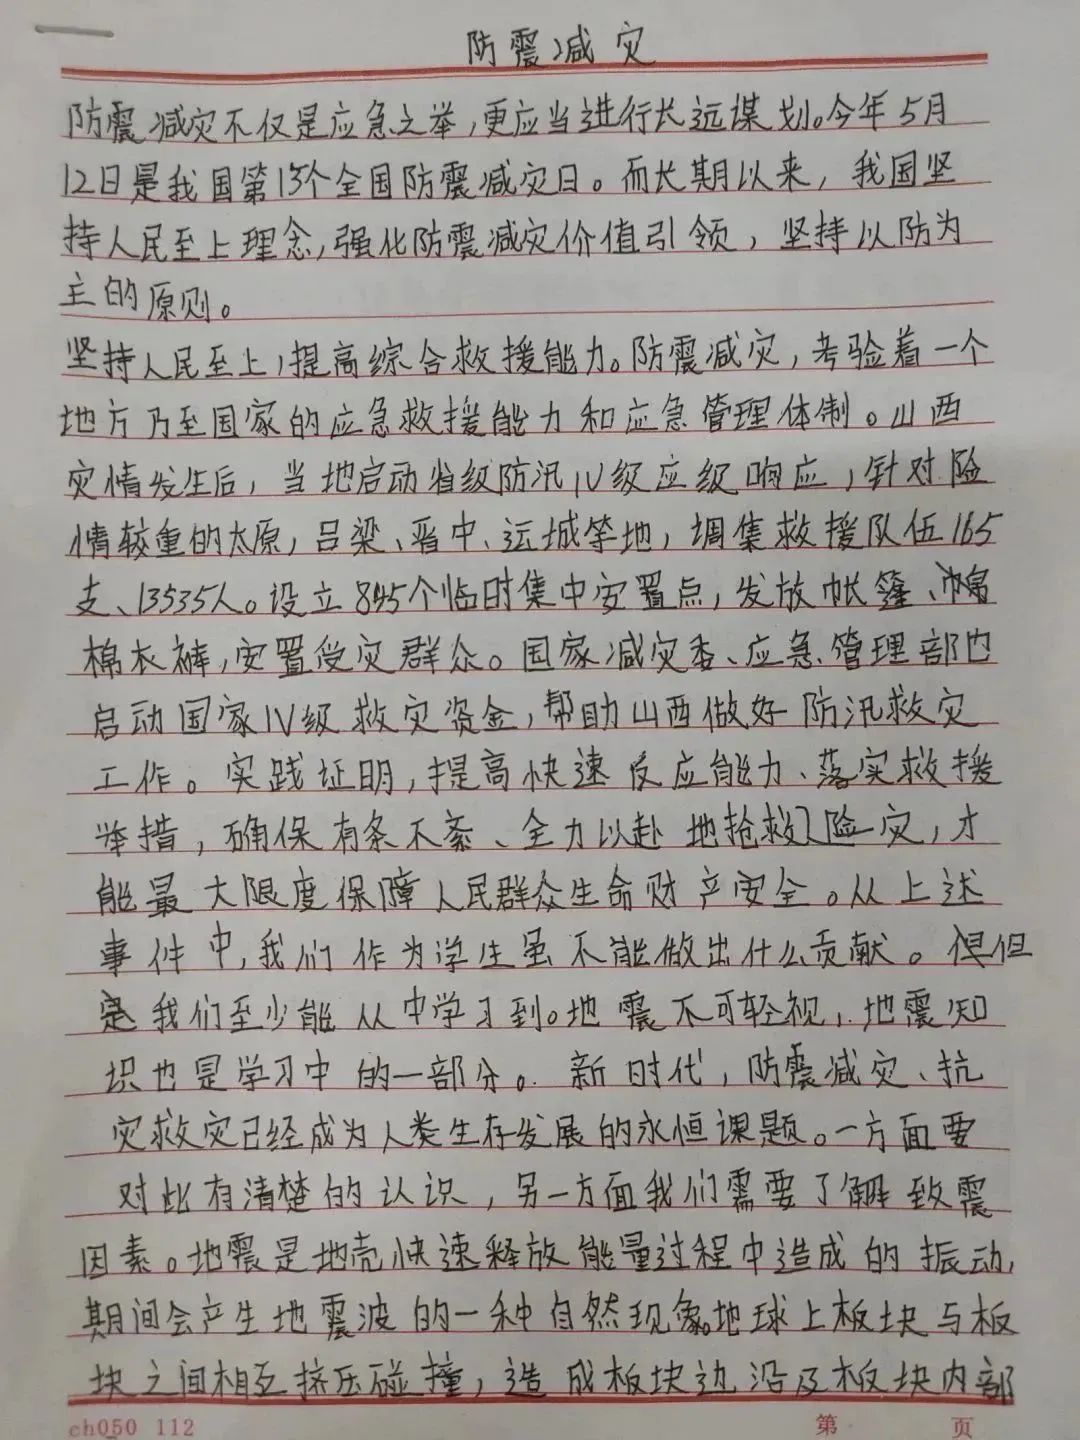 防震减灾
防震减灾不仅是应急之举,更应当进行长远谋划。今年5月
12日是我国第13个全国防震减灾日。而长期以来，我国坚
持人民至上理念,强化防震减灾价值引领，坚持以防为
主的原则。
坚持人民至上,提高综合救援能力。防震减灾，考验着一个
地方乃至国家的应急救援能力和应急管理体制。山西
灾情发生后，当地启动省级防汛IV级应级响应,针对险
情较重的太原,吕梁、晋中、运城等地，调集救援队伍165
支、13535人。设立845个临时集中安置点，发放帐篷、棉
棉衣裤,安置受灾群众。国家减灾委、应急管理部也
启动国家IV级救灾资金,帮助山西做好防汛救灾
工作。实践证明,提高快速反应能力、落实救援
举措，确保有条不紊、全力以赴地抢救险灾，才
能最大限度保障人民群众生命财产安全。从上述
事件中,我们作为学生虽不能做出什么贡献。但
是我们至少能从中学习到。地震不可轻视，地震知
识也是学习中的一部分。新时代，防震减灾、抗
灾救灾已经成为人类生存发展的永恒课题。一方面要
对此有清楚的认识，另一方面我们需要了解致震
因素。地震是地壳快速释放能量过程中造成的振动,
期间会产生地震波的一种自然现象。地球上板块与板
块之间相互挤压碰撞，造成板块边沿及板块内部
ch050 112
第 页